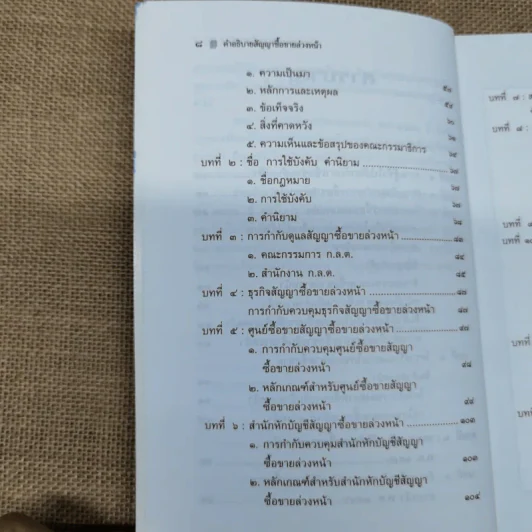 ๘ คำอธิบายสัญญาซื้อขายล่วงหน้า
๑. ความเป็นมา
๒. หลักการและเหตุผล
๓. ข้อเท็จจริง
๔. สิ่งที่คาดหวัง
๕. ความเห็นและข้อสรุปของคณะกรรมาธิการ
บทที่ ๒ : ชื่อ การใช้บังคับ คำนิยาม
๑. ชื่อกฎหมาย
๒. การใช้บังคับ
๓. คำนิยาม
บทที่ ๓ : การกำกับดูแลสัญญาซื้อขายล่วงหน้า
๑. คณะกรรมการ ก.ล.ต. ๘๔
๒. สำนักงาน ก.ล.ต. ๘๕
บทที่ ๔ : ธุรกิจสัญญาซื้อขายล่วงหน้า ๘๗
การกำกับควบคุมธุรกิจสัญญาซื้อขายล่วงหน้า ๘๗
บทที่ ๕ : ศูนย์ซื้อขายสัญญาซื้อขายล่วงหน้า ๙๗
๑. การกำกับควบคุมศูนย์ซื้อขายสัญญา
ซื้อขายล่วงหน้า ๙๘
๒. หลักเกณฑ์สำหรับศูนย์ซื้อขายสัญญา
ซื้อขายล่วงหน้า ๙๙
บทที่ ๖ : สำนักหักบัญชีสัญญาซื้อขายล่วงหน้า ๑๐๓
๑. การกำกับควบคุมสำนักหักบัญชีสัญญา
ซื้อขายล่วงหน้า ๑๐๓
๒. หลักเกณฑ์สำหรับสำนักหักบัญชีสัญญา
ซื้อขายล่วงหน้า ๑๐๔
บทที่ ๗ :
บทที่ ๘ :